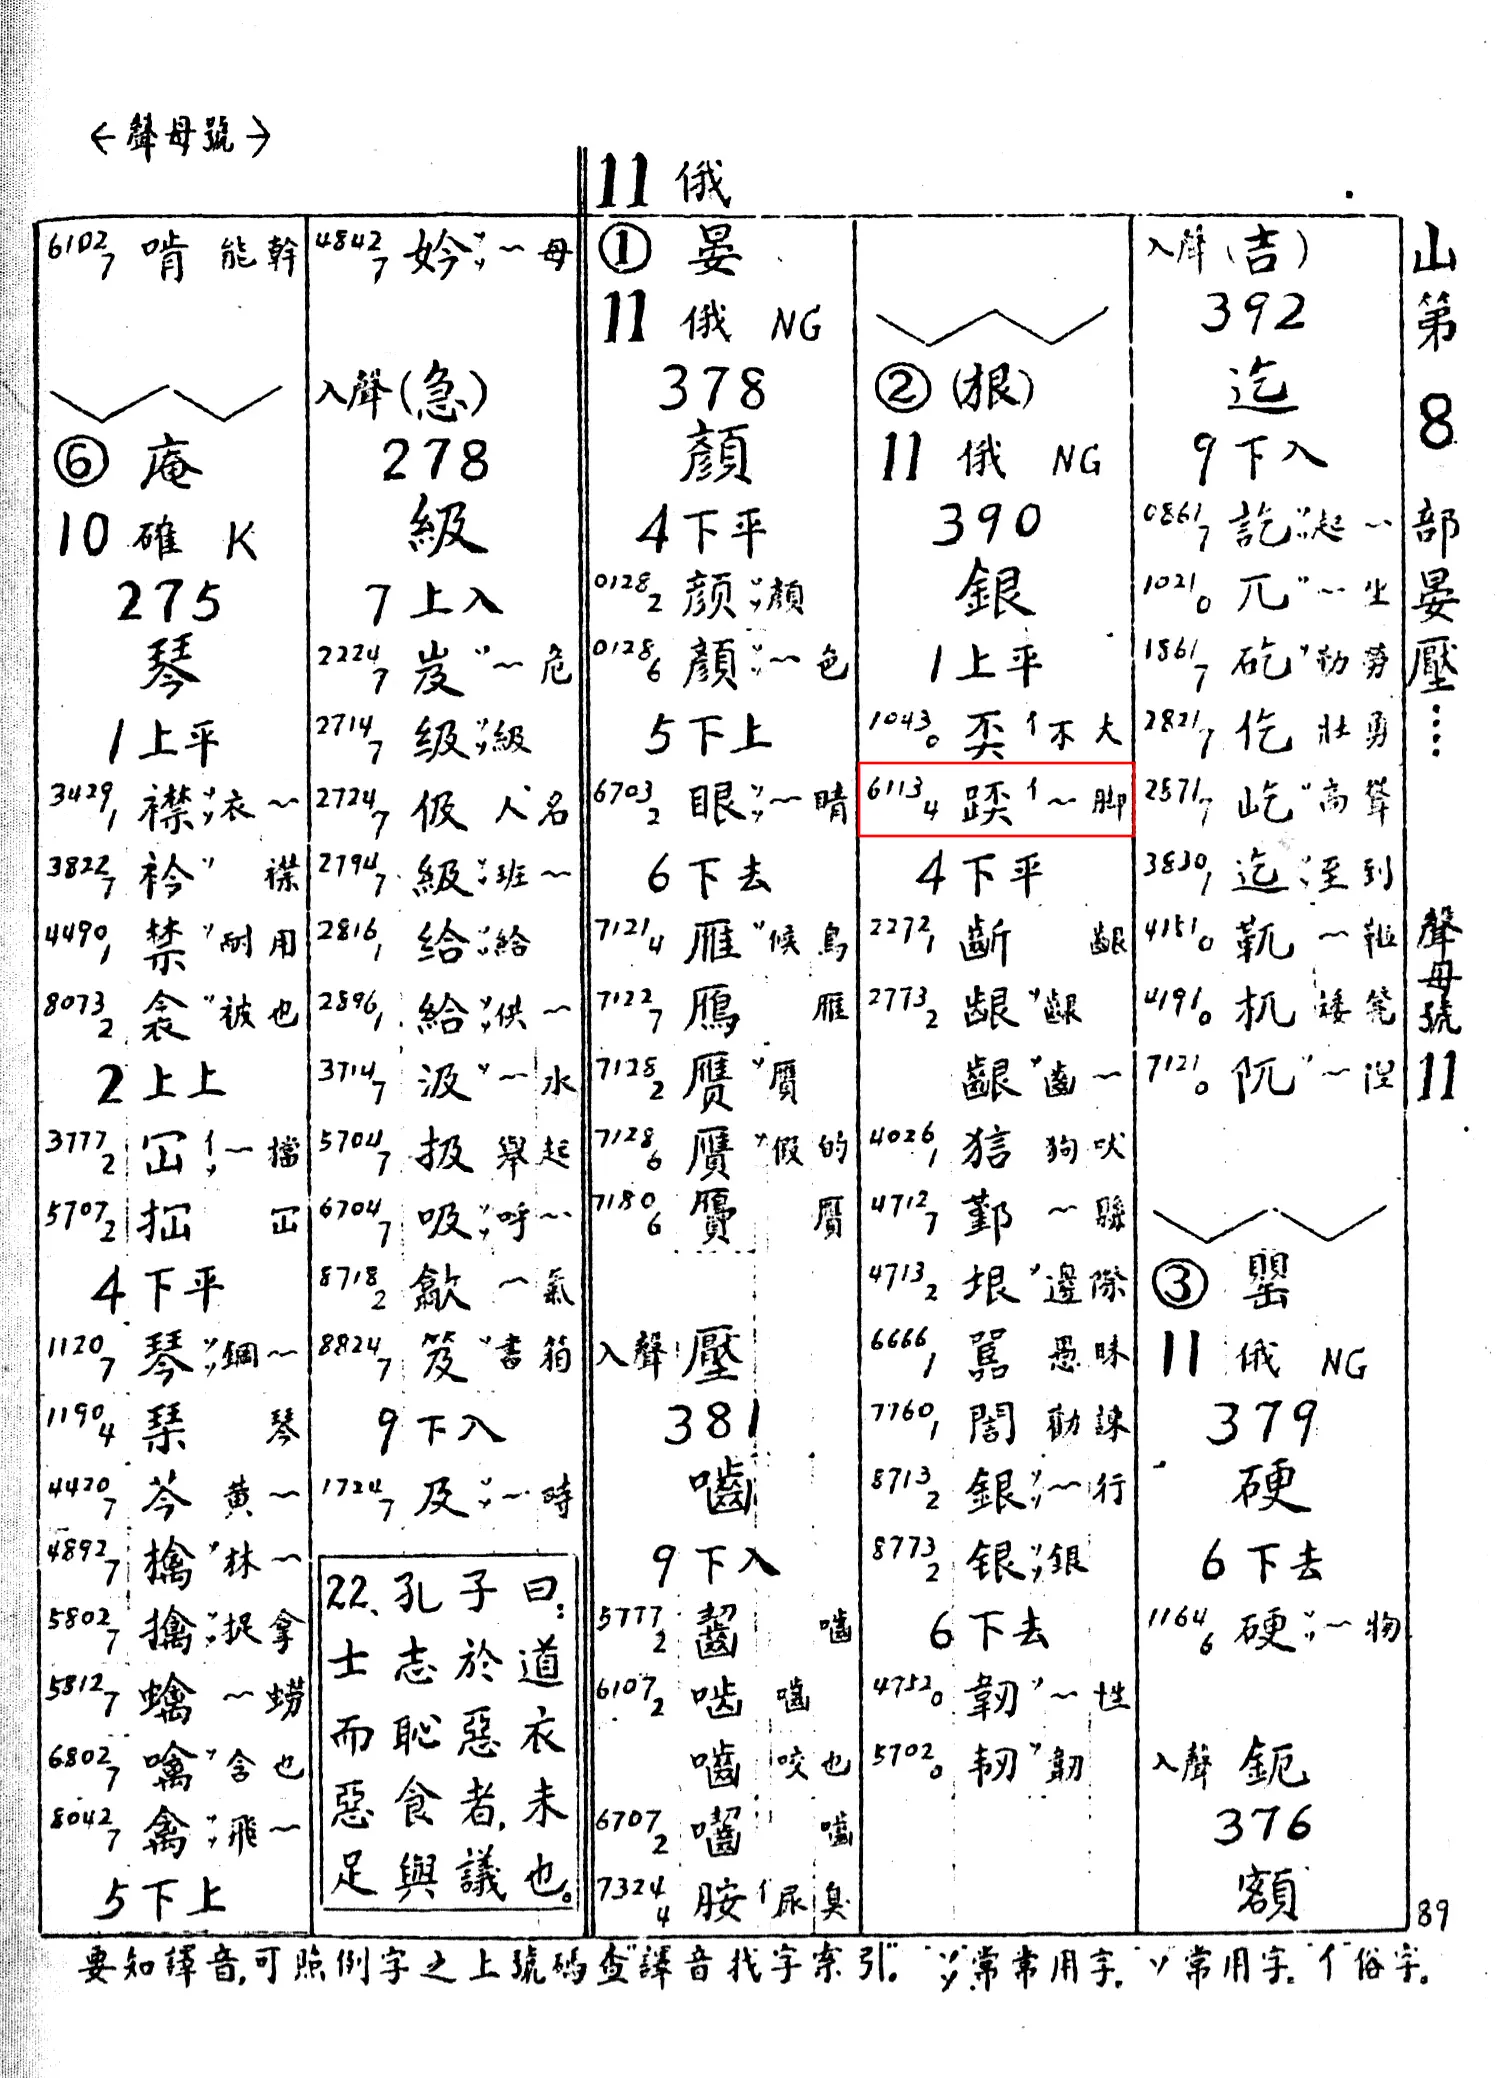 <聲母號>
11 俄
6102/7 啃 能幹
⑥ 庵
10 確 K
275
琴
1 上平
3429/1 襟 〃衣~
3822/7 衿 〃 襟
4490/1 禁 〃耐用
8073/2 衾 〃被也
2 上上
3777/2 䍏~擋
4 下平
1120/7 琴 〃鋼~
1190/4 栞 琴
4420/7 芩 黄~
4892/7 檎 〃林~
5802/7 擒 〃捉拿
5812/7 蠄 ~蟧
6802/7 噙 〃含也
8042/7 禽 〃飛~
5 下上
4842/7 妗 〃~母
入聲(急)
278
級
7 上入
2224/7 岌 〃~危
2714/7 级 〃級
2724/7 伋 人名
2794/7 級 〃班~
2816/1 给 〃給
2896/1 給 〃供~
3714/7 汲 〃~水
5704/7 扱 舉起
6704/7 吸 〃呼~
8718/2 歙 ~氣
8824/7 笈 〃書箱
9 下入
1724/7 及 〃~時
22、孔子曰:
士志於道
而恥惡衣
惡食者,未
足與議也。
① 晏
11 俄 NG
378
顏
4 下平
0128/2 颜 〃顏
0128/6 顏 〃~色
5 下上
6703/2 眼 〃~睛
6 下去
7121/4 雁 〃候鳥
7122/7 鴈 雁
7128/2 赝 〃贋
7128/6 贋 〃假的
7180/6 贗 贋
入聲 壓
381
嚙
9 下入
5777/2 齧 嚙
6107/2 啮 嚙
嚙 咬也
6707/2 囓 嚙
7324/4 胺 亻尿臭
② (根)
11 俄 NG
390
銀
1 上平
1043/0 奀 亻不大
6113/4 踩 亻~脚
4 下平
2272/1 齗 齦
2773/2 龈 〃齦
齦 〃齒~
4026/1 狺 狗吠
4712/7 鄞 ~縣
4713/2 垠 〃邊際
6666/1 嚚 愚昧
7760/1 誾 勸諫
8713/2 銀 〃~行
8773/2 银 〃銀
6 下去
4752/0 韌 〃~性
5702/0 韧 〃韌
入聲(吉)
392
迄
9 下入
0861/7 訖 〃起~
1021/0 兀 〃~坐
1861/7 矻 〃勤勞
2821/7 仡 壯勇
2871/7 屹 〃高聳
3830/1 迄 〃至到
4151/0 靰 ~鞡
4191/0 杌 矮凳
7121/0 阢 〃~隉
③ 罌
11 俄 NG
379
硬
6 下去
1164/6 硬 〃~物
入聲 鈪
376
額
山第8部晏壓⋯⋯ 聲母號11
89
要知譯音,可照例字之上號碼查"譯音找字索引"。 "〃"常常用字. "〃"常用字. "亻"俗字。